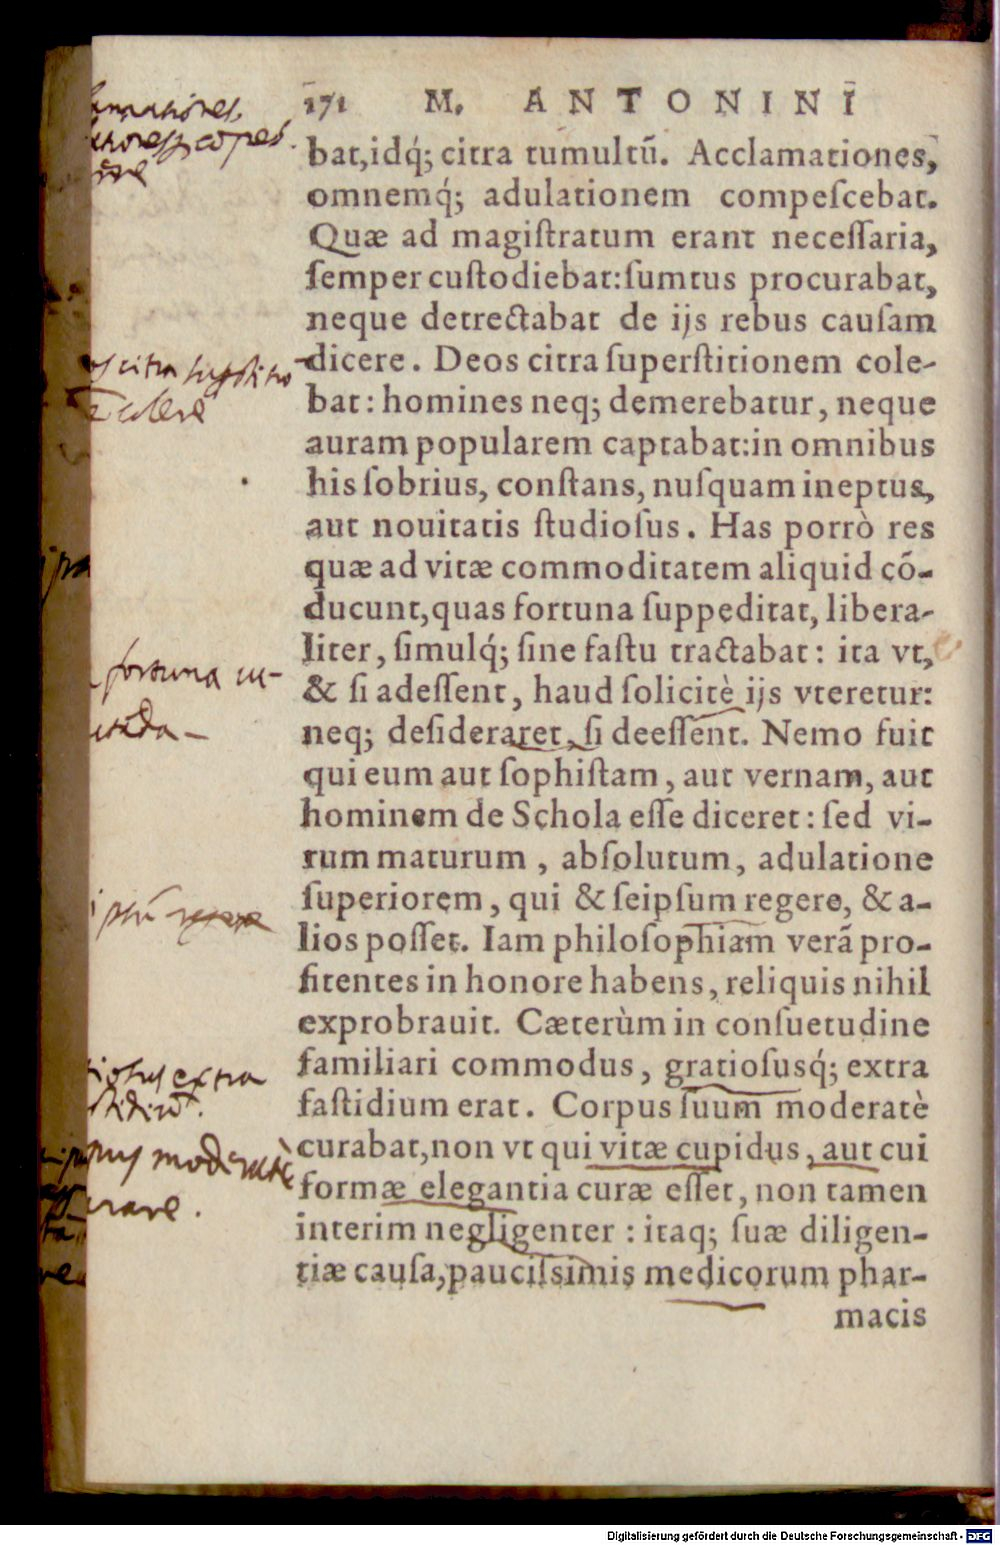 171 M. ANTONINI
bat,idq́; citra tumultū. Acclamationes,
omnemq́; adulationem compeſcebat.
Quæ ad magiſtratum erant neceſſaria,
ſemper cuſtodiebat:ſumtus procurabat,
neque detrectabat de ijs rebus cauſam
dicere. Deos citra ſuperſtitionem cole-
bat: homines neq; demerebatur, neque
auram popularem captabat:in omnibus
his ſobrius, conſtans, nuſquam ineptus,
aut nouitatis ſtudioſus. Has porrò res
quæ ad vitæ commoditatem aliquid cō-
ducunt,quas fortuna ſuppeditat, libera-
liter, ſimulq́; ſine faſtu tractabat: ita vt,
& ſi adeſſent, haud ſolicitè ijs vteretur:
neq; deſideraret, ſi deeſſent. Nemo fuit
qui eum aut ſophiſtam, aut vernam, aut
hominem de Schola eſſe diceret: ſed vi-
rum maturum, abſolutum, adulatione
ſuperiorem, qui & ſeipſum regere, & a-
lios poſſet. Iam philoſophiam verā pro-
fitentes in honore habens, reliquis nihil
exprobrauit. Cæterùm in conſuetudine
familiari commodus, gratioſusq́; extra
faſtidium erat. Corpus ſuum moderatè
curabat,non vt qui vitæ cupidus, aut cui
formæ elegantia curæ eſſet, non tamen
interim negligenter: itaq; ſuæ diligen-
tiæ cauſa,pauciſsimis medicorum phar-
macis
citra
colere
fortuna
extra
moderatè
Digitalisierung gefördert durch die Deutsche Forschungsgemeinschaft - DFG